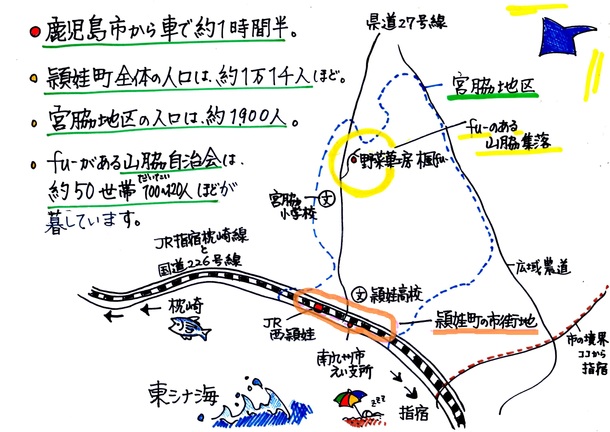 鹿児島市から車で約1時間半。
頴娃町全体の人口は、約1万1千人ほど。
宮脇地区の人口は、約1,900人。
fu-がある山脇自治会は、
約50世帯 だいたい 100〜120人ほどが
暮しています。
県道27号線
宮脇地区
fu-のある
山脇集落
野菜菓子房 楓fu-
宮脇
小学校
文
JR指宿枕崎線
と
国道226号線
広域農道
文 頴娃高校
枕崎
JR
西頴娃
頴娃町の市街地
南九州市
えい支所
市の境界
ココから
指宿
東シナ海
zzz
指宿